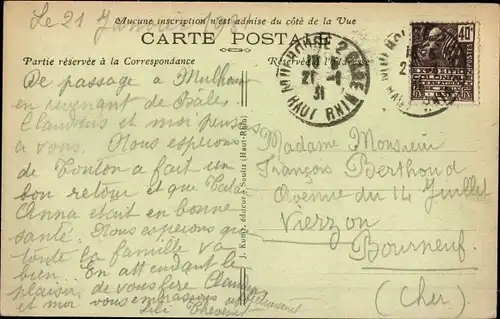 Le 21 Janvier
Aucune inscription n'est admise du côté de la Vue
CARTE POSTALE
Partie réservée à la Correspondance
Réservé à l'Adresse
MULHOUSE 2 GARE
21 -1
31
HAUT RHIN
40c
POSTES
De passage a Mulhouse
en revenant de Bâles
Claudius et moi pensons
a vous. Nous esperons
que Tonton a fait un
bon retour et que
Anna etait en bonne
santé. Nous esperons que
toute la famille va
bien. En attendant le
plaisir de vous lire Claudius
et moi vous embrassons
Lili Thevenet
J. Kuntz, éditeur - Soultz (Haut-Rhin)
Madame Monsieur
François Berthoud
Avenue du 14 Juillet
Vierzon
Bourneuf
(Cher)